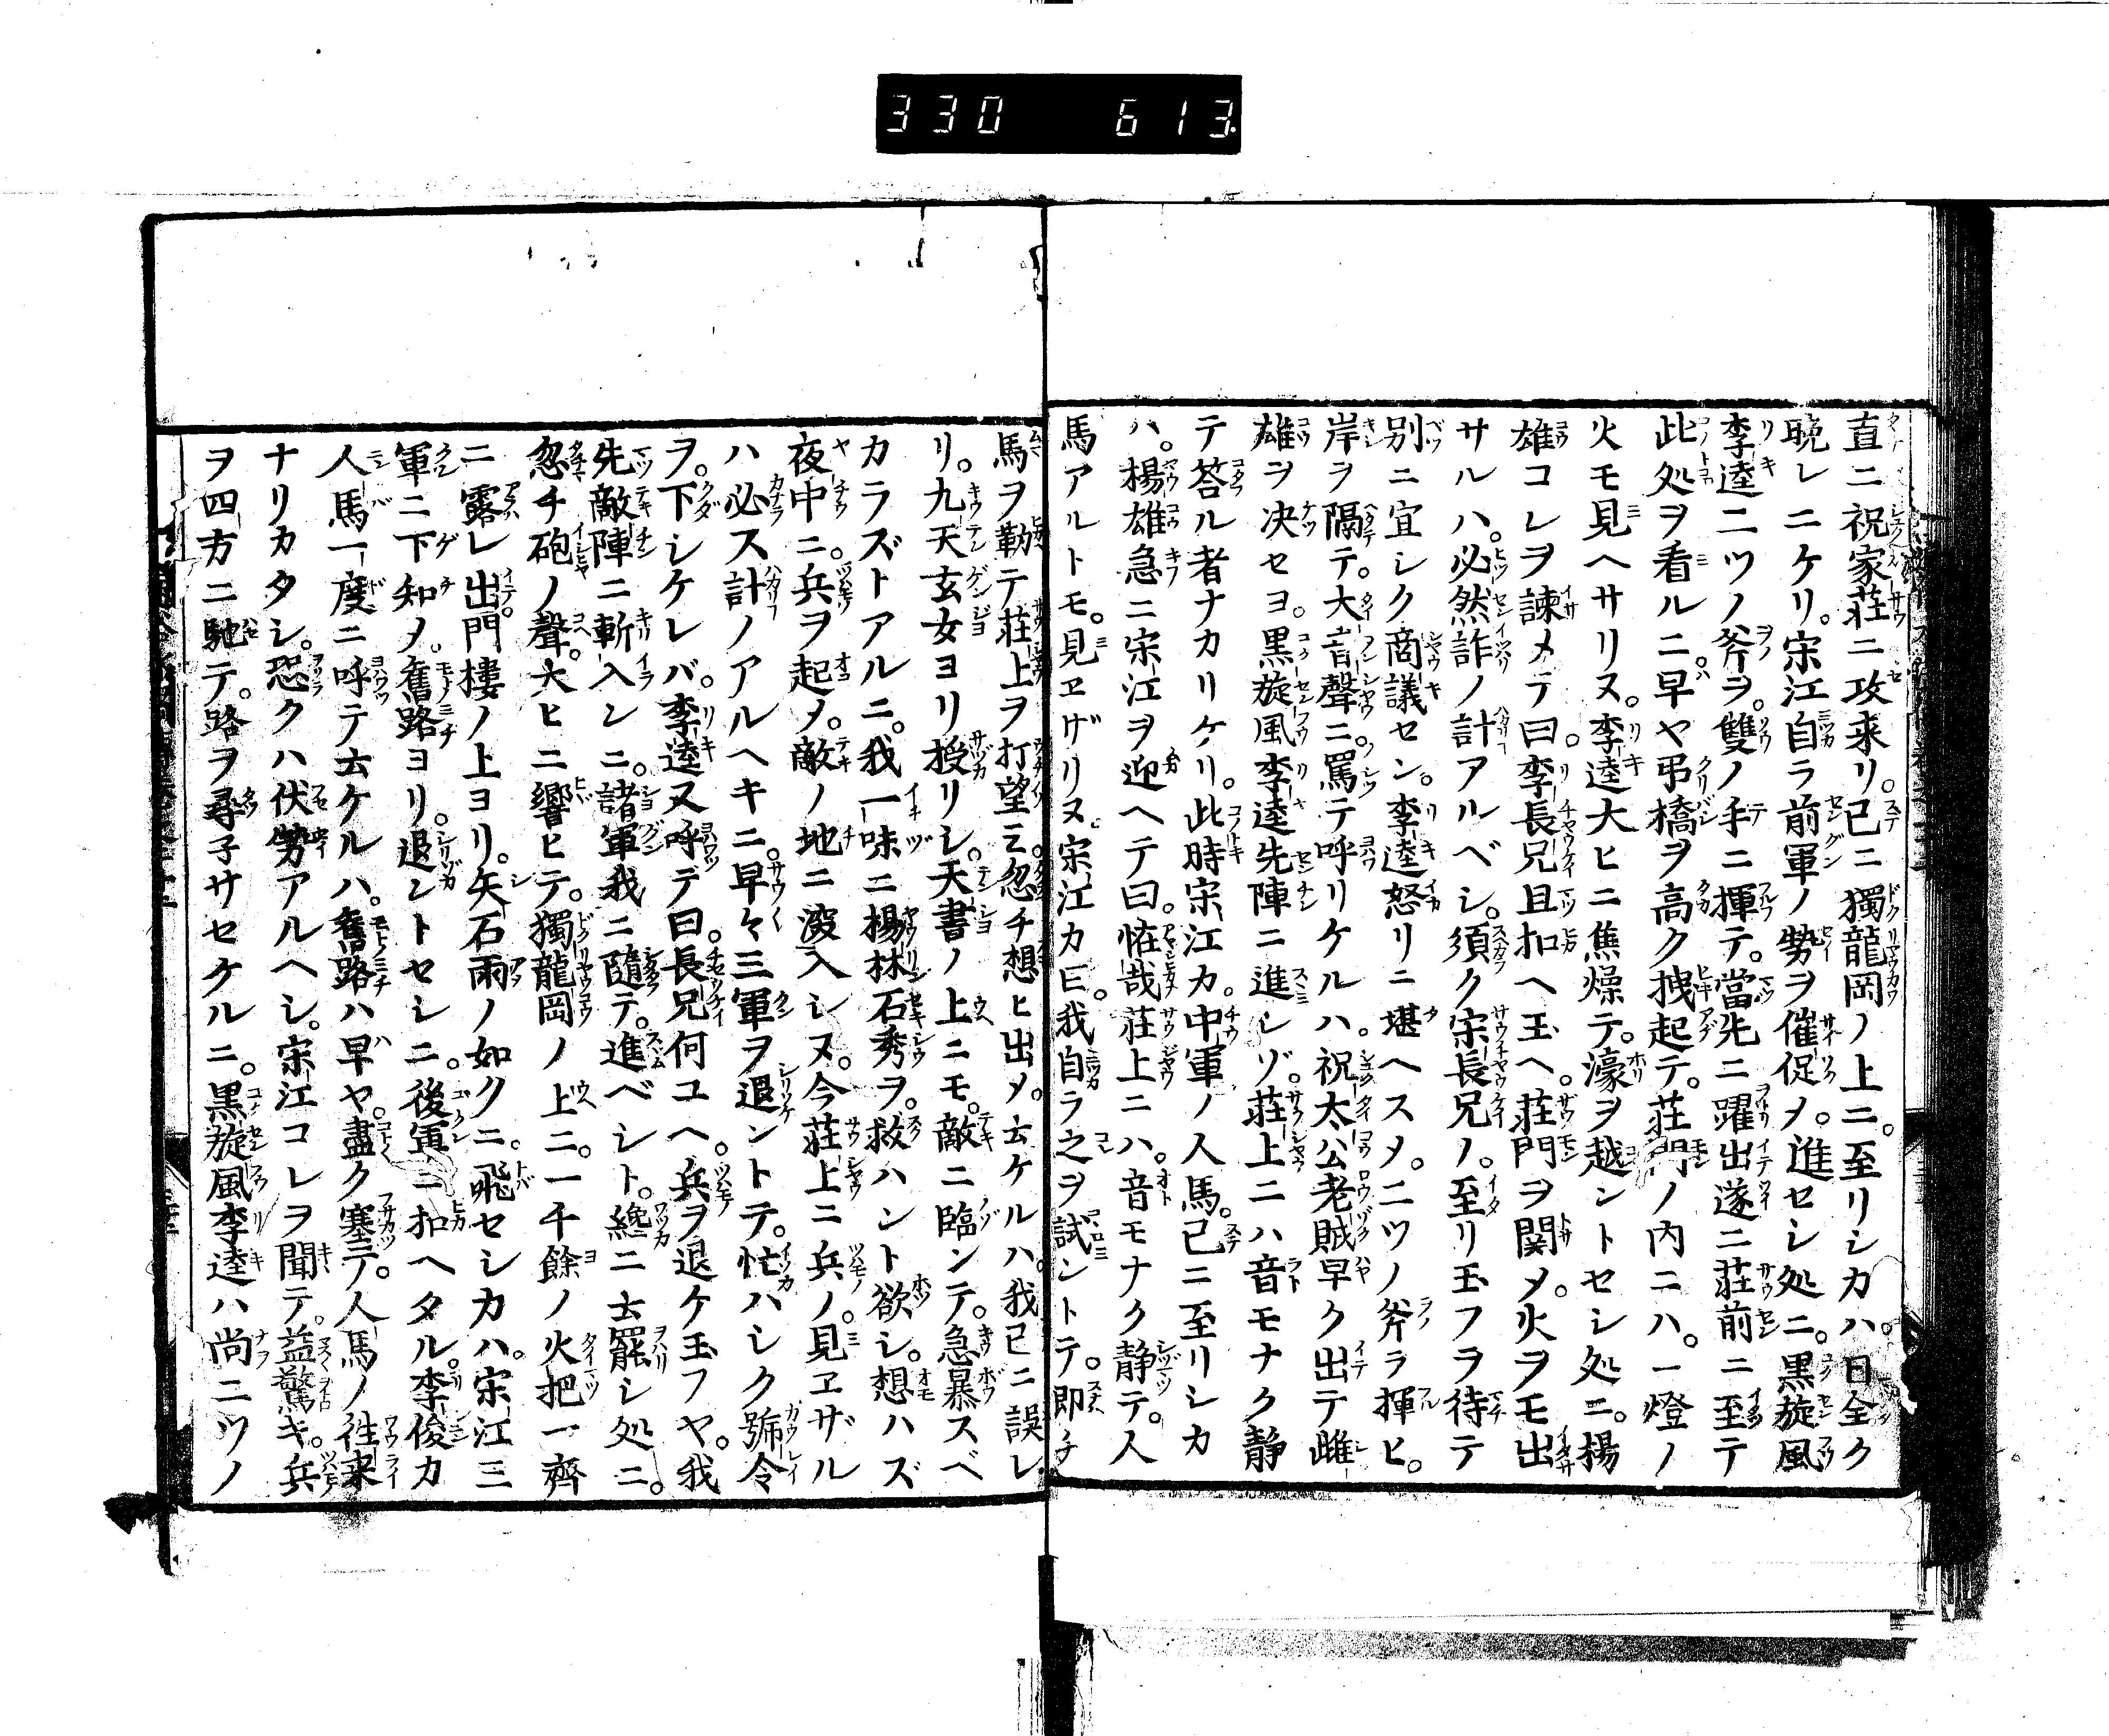 330 613.
直ニ祝家荘ニ攻来リ。已ニ獨龍岡ノ上ニ。至リシカハ。日全ク
晩レニケリ。宋江自ラ前軍ノ勢ヲ催促メ。進セシ処ニ。黒旋風
李逵二ツノ斧ヲ。雙ノ手ニ揮テ。當先ニ躍出遂ニ荘前ニ至テ
此処ヲ看ルニ。早ヤ吊橋ヲ高ク拽起テ。荘門ノ内ニハ。一燈ノ
火モ見ヘサリヌ。李逵大ヒニ焦燥テ。濠ヲ越ントセシ処ニ。楊
雄コレヲ諫メテ曰。李長兄且扣ヘ玉ヘ。荘門ヲ関メ。火ヲモ出
サルハ。必然詐ノ計アルベシ。須ク宋長兄ノ。至リ玉フヲ待テ
別ニ宜シク商議セン。李逵怒リニ堪ヘスメ。二ツノ斧ヲ揮ヒ。
岸ヲ隔テ。大音聲ニ。罵テ呼リケルハ。祝太公老賊早ク出テ雌
雄ヲ决セヨ。黒旋風李逵先陣ニ進レゾ。荘上ニハ音モナク静
テ答ル者ナカリケリ。此時宋江カ。中軍ノ人馬。已ニ至リシカ
ハ。楊雄急ニ宋江ヲ迎ヘテ曰。恠哉荘上ニハ。音モナク静テ。人
馬アルトモ。見ヱザリヌ。宋江カ曰。我自ラ之ヲ試ントテ。即チ
馬ヲ勒テ荘上ヲ打望ミ。忽チ想ヒ出メ。云ケルハ。我已ニ誤レ
リ。九天玄女ヨリ授リシ。天書ノ上ニモ。敵ニ臨ンテ。急暴スベ
カラズトアルニ。我一味ニ楊林石秀ヲ。救ハント欲シ。想ハズ
夜中ニ。兵ヲ起メ。敵ノ地ニ深入シヌ。今荘上ニ兵ノ。見ヱザル
ハ必ス計ノアルヘキニ。早々三軍ヲ退ントテ。忙ハシク號令
ヲ。下シケレバ。李逵又呼デ曰。長兄何ユヘ。兵ヲ退ケ玉フヤ。我
先敵陣ニ斬入ンニ。諸軍我ニ隨テ。進ベシト。纔ニ云罷シ処ニ。
忽チ砲ノ聲。大ヒニ響ヒテ。獨龍岡ノ上ニ。一千餘ノ火把一齊
ニ露レ出。門樓ノ上ヨリ。矢石雨ノ如クニ。飛セシカハ。宋江三
軍ニ下知メ。舊路ヨリ。退ントセシニ。後軍ニ扣ヘタル。李俊カ
人馬一度ニ呼テ云ケルハ。舊路ハ早ヤ。盡ク塞テ。人馬ノ徃来
ナリカタシ。恐クハ伏勢アルヘシ。宋江コレヲ聞テ。益驚キ。兵
ヲ四方ニ馳テ。路ヲ尋子サセケルニ。黒旋風李逵ハ尚二ツノ